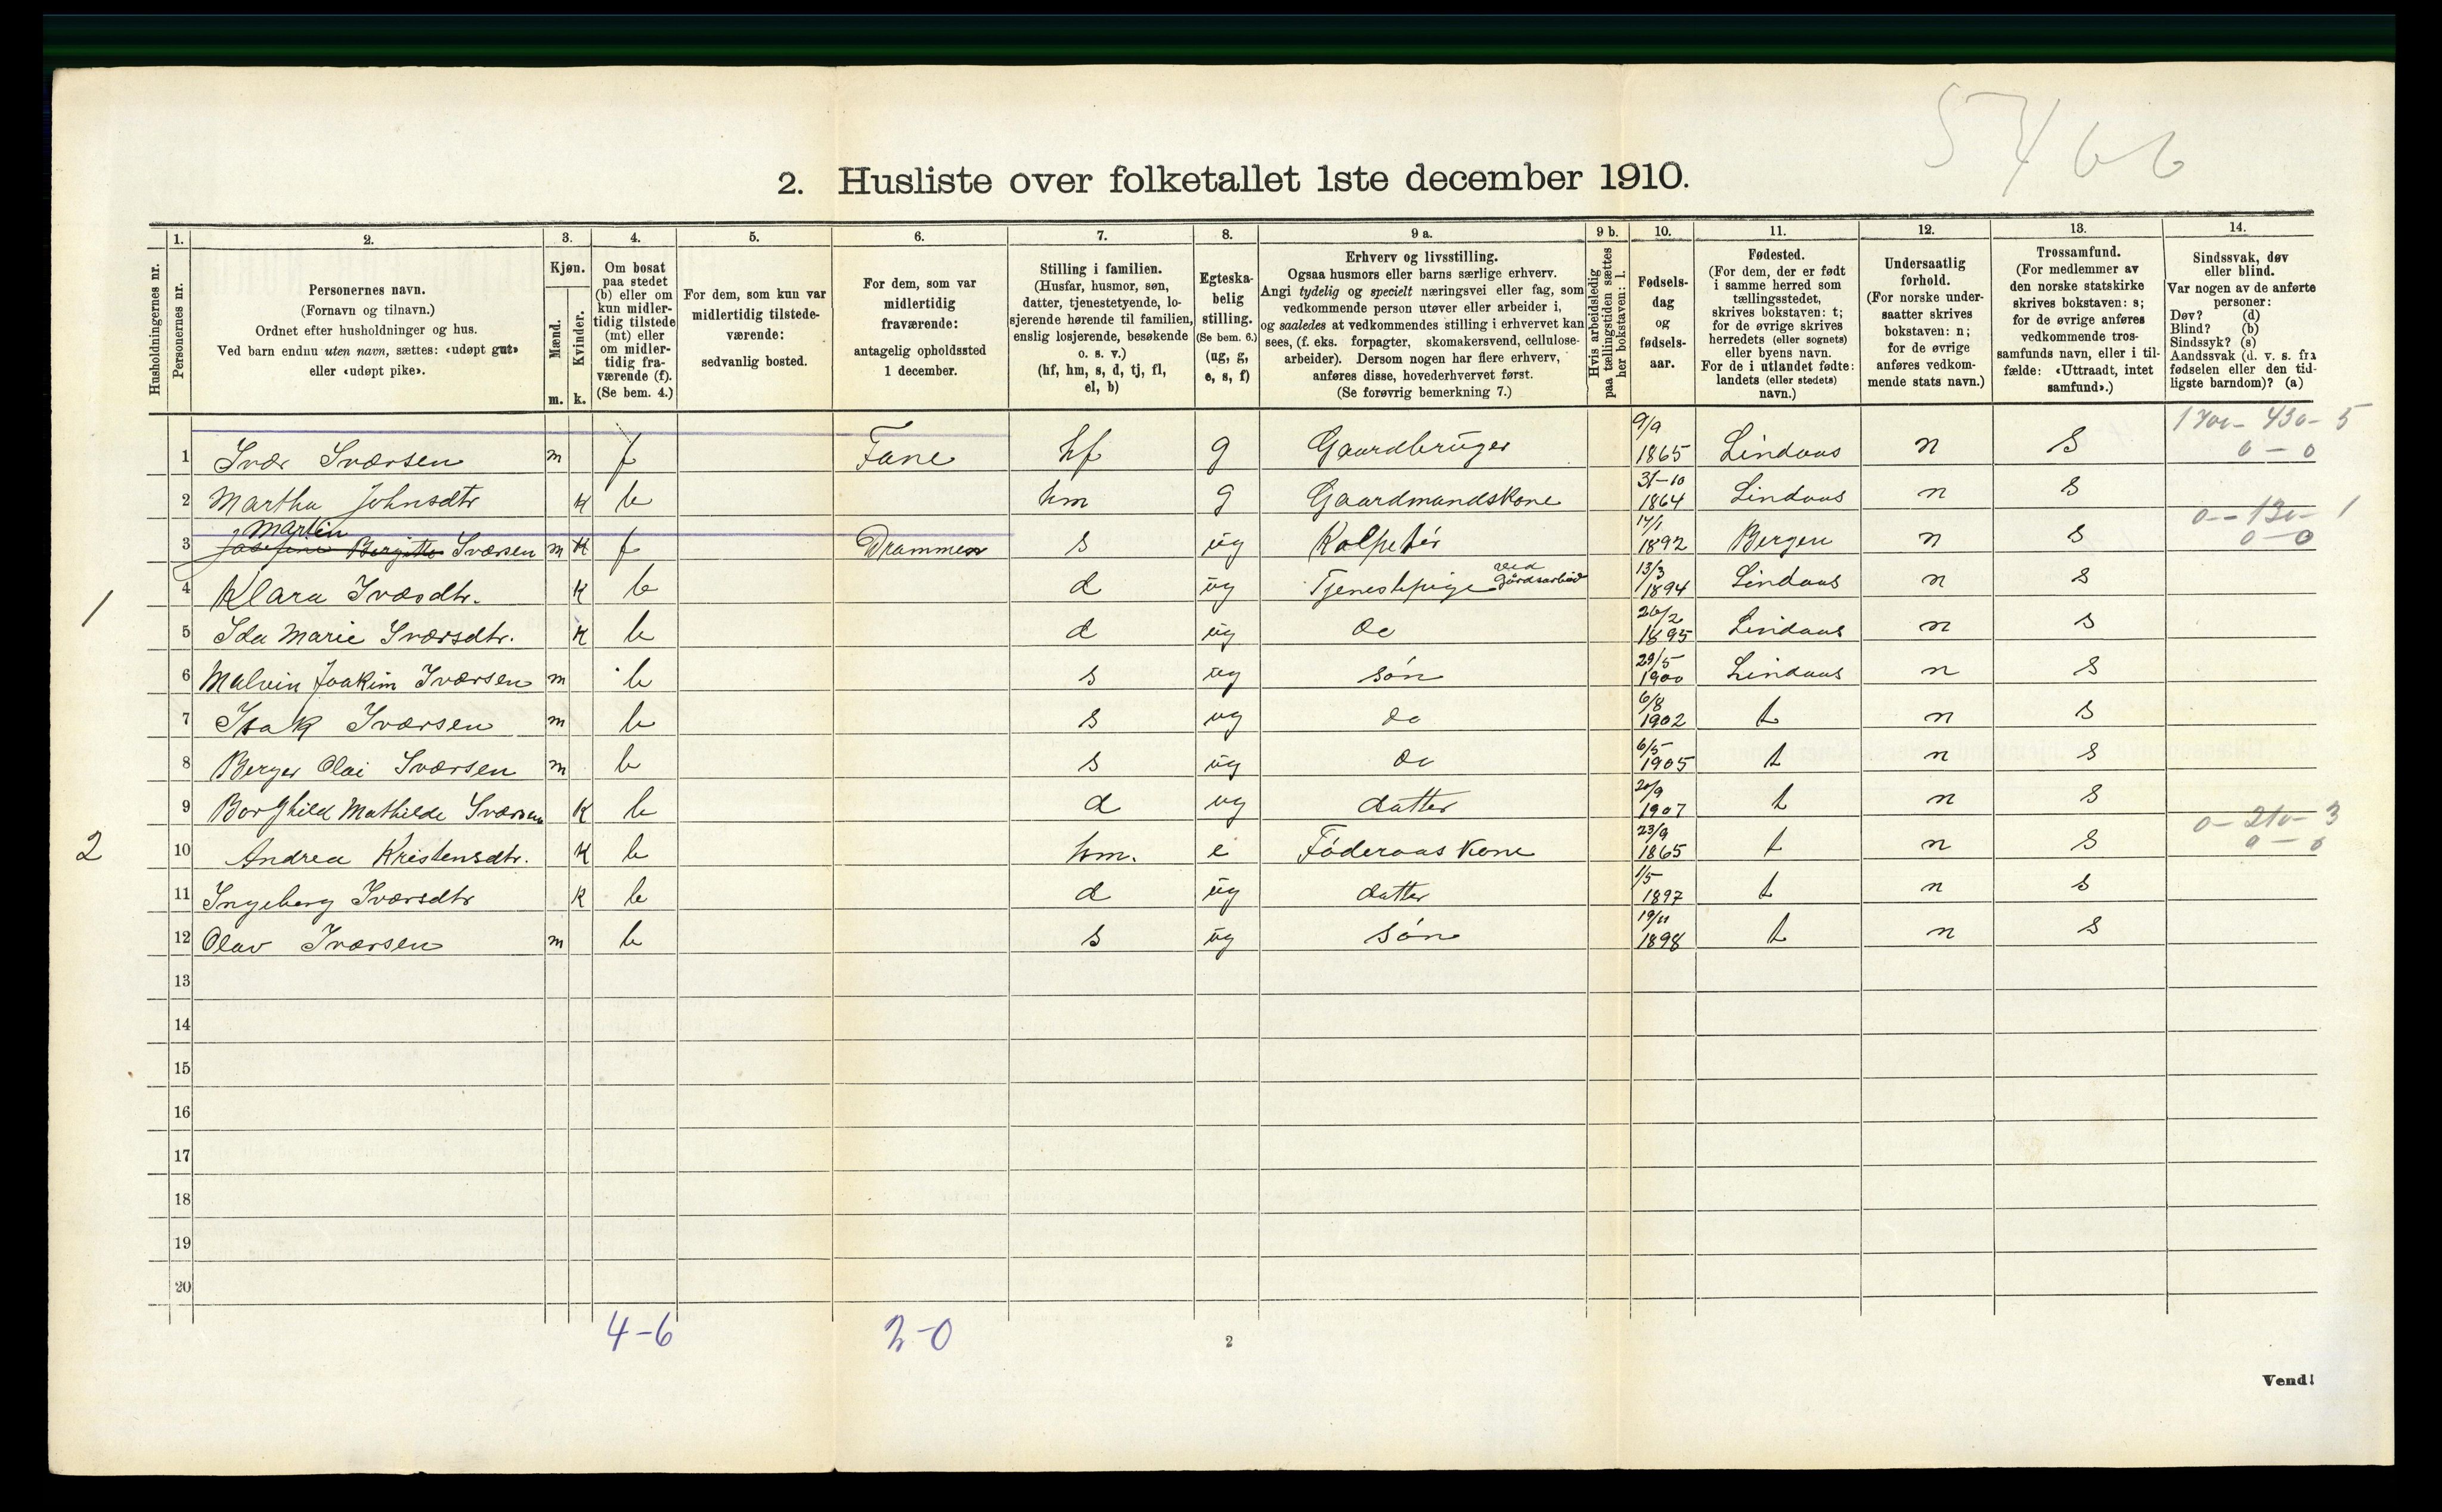 5466
2. Husliste over folketallet 1ste december 1910.
Husholdningernes nr.
1.
Personernes nr.
2.
Personernes navn.
(Fornavn og tilnavn.)
Ordnet efter husholdninger og hus.
Ved barn endnu uten navn, sættes: «udøpt gut»
eller «udøpt pike».
3.
Kjøn.
Mænd.
Kvinder.
m. k.
4.
Om bosat
paa stedet
(b) eller om
kun midler-
tidig tilstede
(mt) eller
om midler-
tidig fra-
værende (f).
(Se bem. 4.)
5.
For dem, som kun var
midlertidig tilstede-
værende:
sedvanlig bosted.
6.
For dem, som var
midlertidig
fraværende:
antagelig opholdssted
1 december.
7.
Stilling i familien.
(Husfar, husmor, søn,
datter, tjenestetyende, lo-
sjerende hørende til familien,
enslig losjerende, besøkende
o. s. v.)
(hf, hm, s, d, tj, fl,
el, b)
8.
Egteska-
belig
stilling.
(Se bem. 6.)
(ug, g,
e, s, f)
9 a.
Erhverv og livsstilling.
Ogsaa husmors eller barns særlige erhverv.
Angi tydelig og specielt næringsvei eller fag, som
vedkommende person utøver eller arbeider i,
og saaledes at vedkommendes stilling i erhvervet kan
sees, (f. eks. forpagter, skomakersvend, cellulose-
arbeider). Dersom nogen har flere erhverv,
anføres disse, hovederhvervet først.
(Se forøvrig bemerkning 7.)
9 b.
Hvis arbeidsledig
paa tællingstiden sættes
her bokstaven: l.
10.
Fødsels-
dag
og
fødsels-
aar.
11.
Fødested.
(For dem, der er født
i samme herred som
tællingsstedet,
skrives bokstaven: t;
for de øvrige skrives
herredets (eller sognets)
eller byens navn.
For de i utlandet fødte:
landets (eller stedets)
navn.)
12.
Undersaatlig
forhold.
(For norske under-
saatter skrives
bokstaven: n;
for de øvrige
anføres vedkom-
mende stats navn.)
13.
Trossamfund.
(For medlemmer av
den norske statskirke
skrives bokstaven: s;
for de øvrige anføres
vedkommende tros-
samfunds navn, eller i til-
fælde: «Uttraadt, intet
samfund».)
14.
Sindssvak, døv
eller blind.
Var nogen av de anførte
personer:
Døv? (d)
Blind? (b)
Sindssyk? (s)
Aandssvak (d. v. s. fra
fødselen eller den tid-
ligste barndom)? (a)
1 Ivar Iværsen m f Fane hf g Gaardbruger 9/9 1865 Lindaas n s 0 – 0
2 Martha Johnsdtr k b hm g Gaardmandskone 31-10 1864 Lindaas n s
Martin
3 Josefine Bergitte Iværsen m k f Drammen s ug 14/1 1892 Bergen n s 0 – 130 – 1 0 – 0
1
4 Klara Iværsdtr. k b d ug Tjenestepige ved Gårdsarbeid 13/3 1894 Lindaas n s
5 Ida Marie Iværsdtr. k b d ug do 26/2 1895 Lindaas n s
6 Malvin Joakim Iværsen m b s ug søn 29/5 1900 Lindaas n s
7 Isak Iværsen m b s ug do 6/8 1902 t n s
8 Berger Olai Iværsen m b s ug do 6/5 1905 t n s
9 Borghild Mathilde Iværsen k b d ug datter 20/9 1907 t n s
2
10 Andrea Kristensdtr. k b hm. e Föderaas kone 23/9 1865 t n s 0 – 210 – 3 0 – 0
11 Ingeborg Iværsdtr k b d ug datter 1/5 1897 t n s
12 Olav Iværsen m b s ug søn 19/11 1898 t n s
13
14
15
16
17
18
19
20
4-6 2-0
2
Vend!